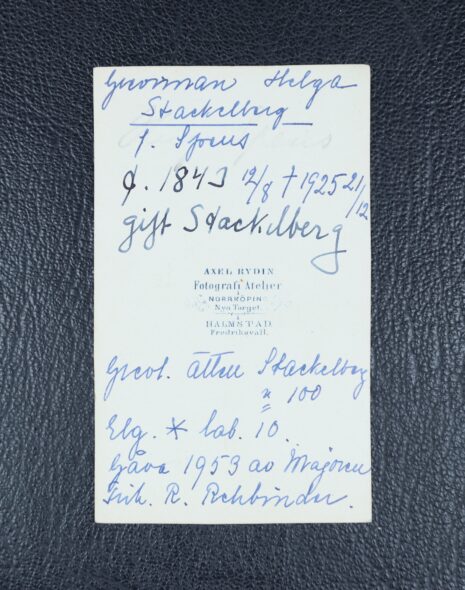 Grevinnan Helga
Stackelberg
f. Spens
f. 1843 12/8 † 1925 21/12
gift Stackelberg
AXEL RYDIN
Fotografi Atelier
NORRKÖPING
Nya Torget.
HALMSTAD
Fredriksvall.
Grevl. ätten Stackelberg
n 100
Elg. * Tab. 10.
Gåva 1953 av Majoren
Frih. R. Rehbinder.